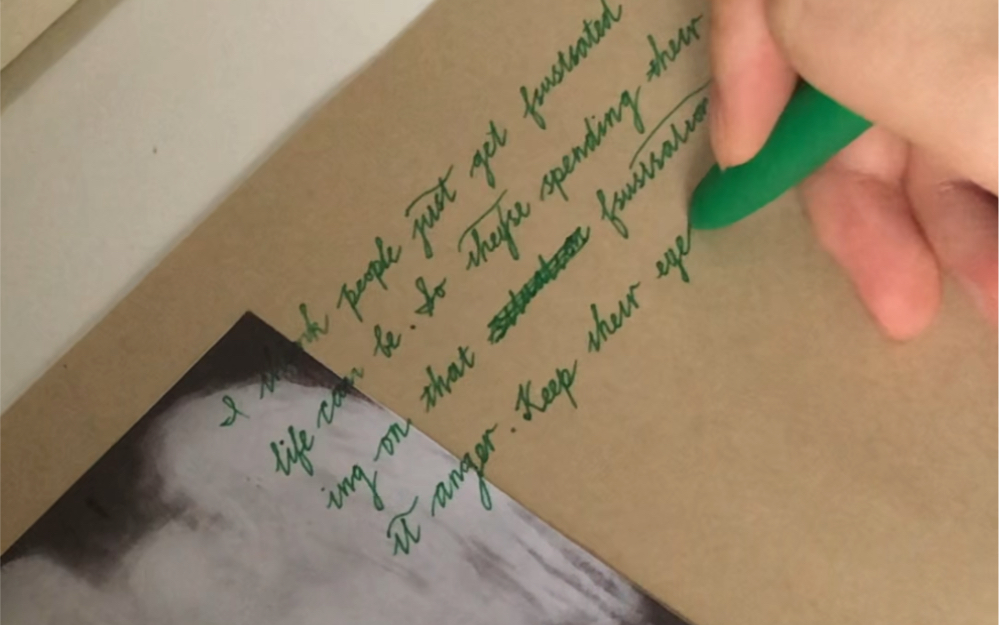 I think people just get frustrated
life can be. So they're spending their
ing on that frustration
it anger. Keep their eye